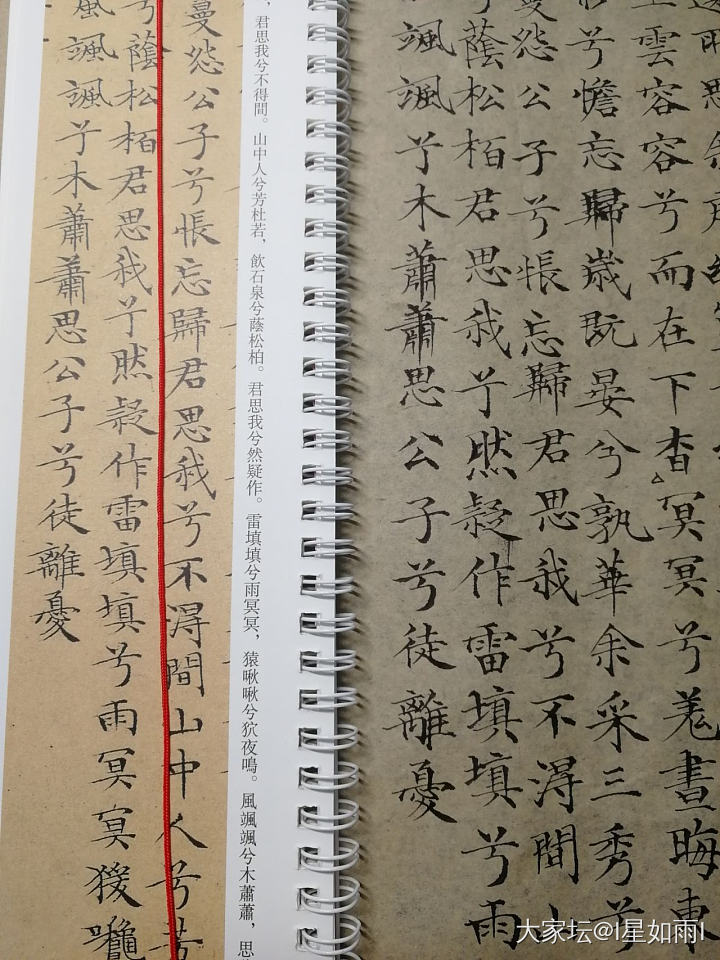 雲容容兮而在下杳冥冥兮羌晝晦東
兮憺忘歸歲既晏兮孰華余采三秀兮
怨公子兮悵忘歸君思我兮不得間山
兮蔭松栢君思我兮然疑作雷填填兮雨
颯颯兮木蕭蕭思公子兮徒離憂
，君思我兮不得間。山中人兮芳杜若，飲石泉兮蔭松柏。君思我兮然疑作。雷填填兮雨冥冥，猿啾啾兮狖夜鳴。風颯颯兮木蕭蕭，思
曼怨公子兮悵忘歸君思我兮不得間山中人兮芳
兮蔭松栢君思我兮然疑作雷填填兮雨冥冥猨
颯颯兮木蕭蕭思公子兮徒離憂
大家坛@I星如雨I